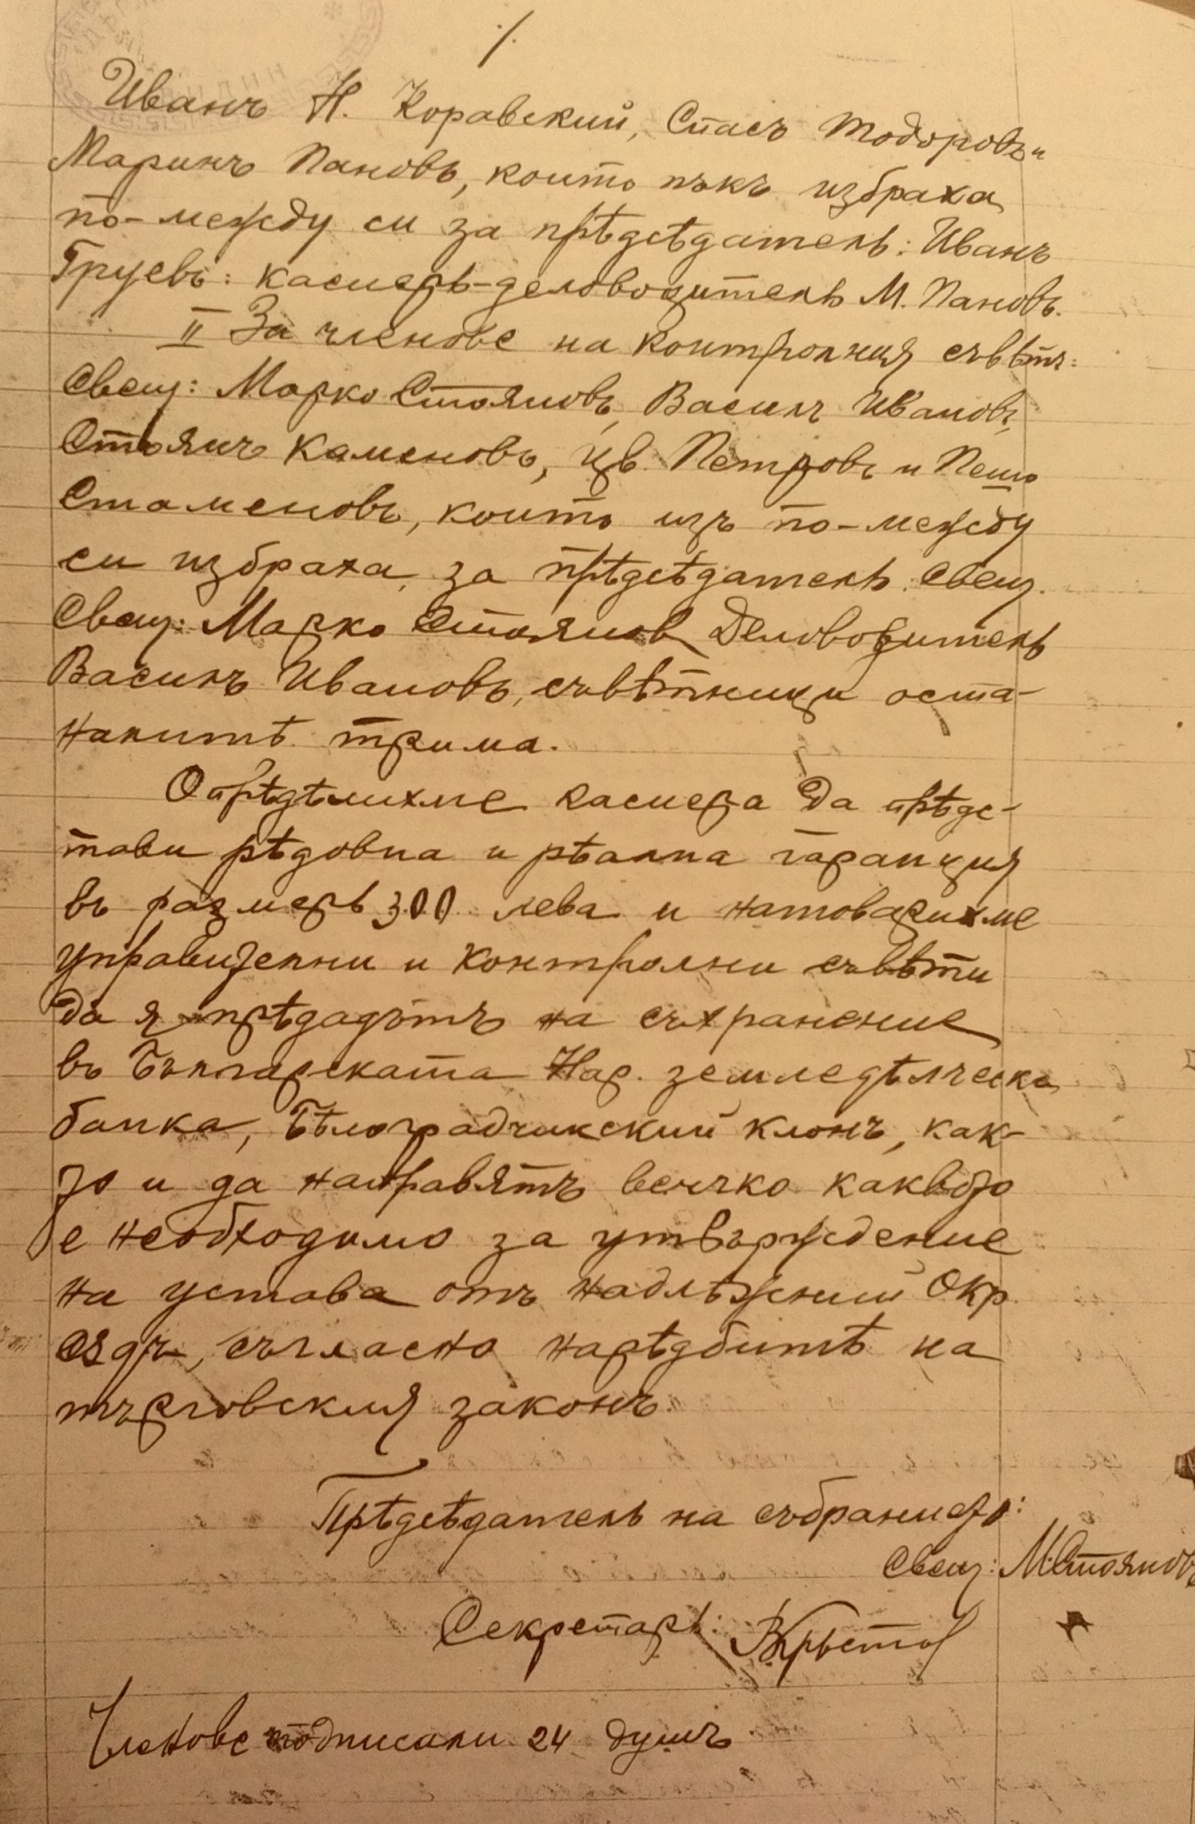 ·/·
Иванъ Н. Коравский, Спасъ Тодоровъ и
Маринъ Пановъ, които пъкъ избраха
по-между си за прѣдсѣдатель: Иванъ
Груевъ: касиеръ-деловодитель М. Пановъ.
II За членове на контролния съвѣтъ:
Свещ: Марко Стояновъ, Василъ Ивановъ,
Стоянъ Каменовъ, Цв. Петровъ и Пешо
Стаменовъ, които изъ по-между
си избраха за прѣдсѣдатель свещ.
Свещ: Марко Стоянов Деловодитель
Василъ Ивановъ, съвѣтници оста-
налитѣ трима.
Опрѣдѣлихме касиера да прѣдс-
тави рѣдовна и рѣална гаранция
въ размеръ 300 лева и натоварихме
управителни и контролни съвѣти
да я прѣдадѫтъ на съхранение
въ Българската Нар. земледѣлческа
банка, Бѣлоградчикский клонъ, как-
то и да направятъ всичко каквото
е необходимо за утвърждение
на устава отъ надлѣжний Окр.
сѫдъ, съгласно нарѣдбитѣ на
търговския законъ.
Прѣдсѣдатель на събранието:
Свещ: М. Стояновъ
Секретарь: В. Кръстов
Членове подписали 24 душъ